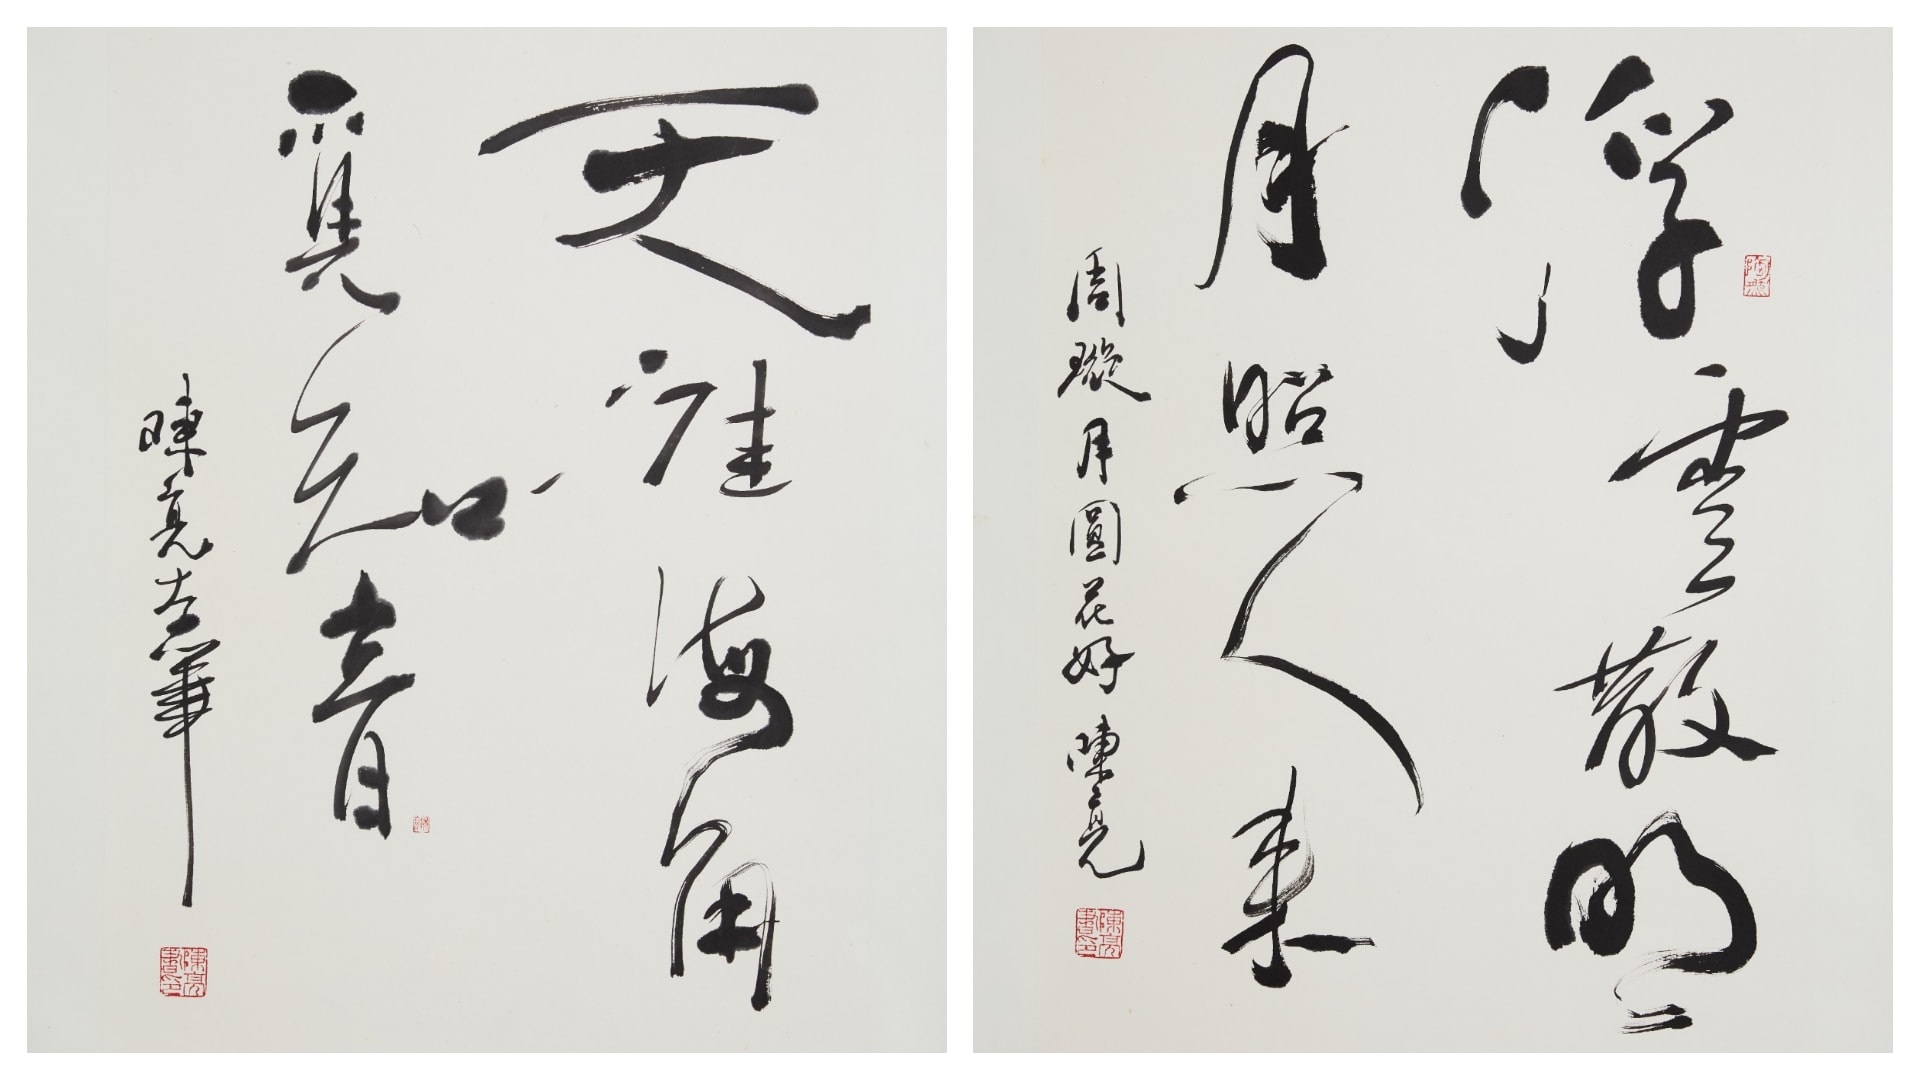 天涯海角
覓知音
陳亮左筆
陳亮書印
浮雲散明々
月照人來
周璇月圓花好 陳亮
陳亮書印